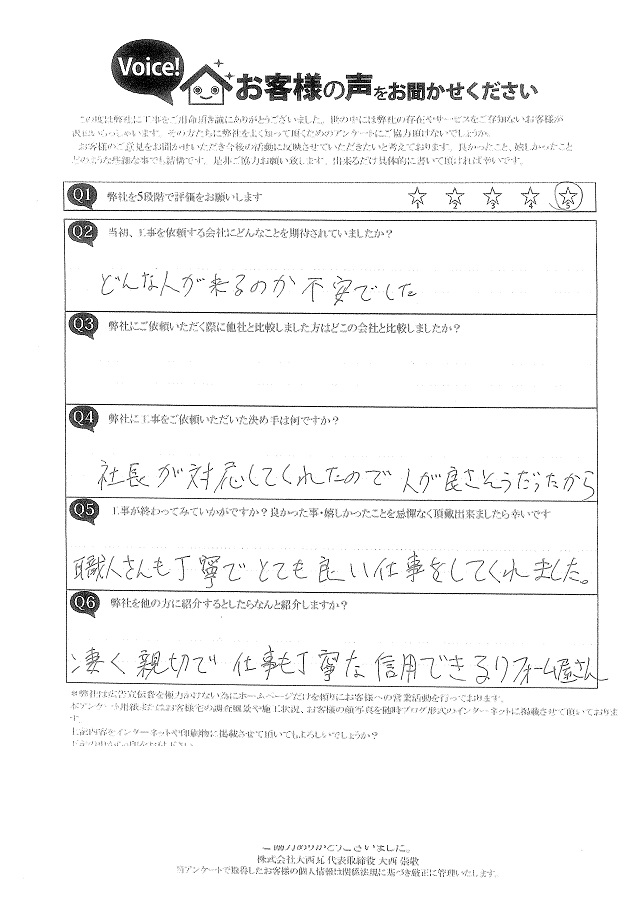 Voice!
お客様の声をお聞かせください
この度は弊社に工事をご用命頂き誠にありがとうございました。世の中には弊社の存在やサービスをご存知ないお客様が
沢山いらっしゃいます。その方たちに弊社をよく知って頂くためのアンケートにご協力頂けないでしょうか。
お客様のご意見をお聞かせいただき今後の活動に反映させていただきたいと考えております。良かったこと、嬉しかったこと
どのような些細な事でも結構です。是非ご協力お願い致します。出来るだけ具体的に書いて頂ければ幸いです。
Q1 弊社を5段階で評価をお願いします
1 2 3 4 5
Q2 当初、工事を依頼する会社にどんなことを期待されていましたか?
どんな人が来るのか不安でした
Q3 弊社にご依頼いただく際に他社と比較しました方はどこの会社と比較しましたか?
Q4 弊社に工事をご依頼いただいた決め手は何ですか?
社長が対応してくれたので人が良さそうだったから
Q5 工事が終わってみていかがですか?良かった事・嬉しかったことを忌憚なく頂戴出来ましたら幸いです
職人さんも丁寧でとても良い仕事をしてくれました。
Q6 弊社を他の方に紹介するとしたらなんと紹介しますか?
凄く親切で仕事も丁寧な信用できるリフォーム屋さん
*弊社は広告宣伝費を極力かけない為にホームページだけを頼りにお客様への営業活動を行っております。
本アンケート用紙またはお客様宅の調査風景や施工状況、お客様の顔写真を随時ブログ形式のインターネットに掲載させて頂いておりま
す。
上記内容をインターネットや印刷物に掲載させて頂いてもよろしいでしょうか?
ご協力ありがとうございました。
株式会社大西瓦 代表取締役 大西 崇敬
当アンケートで取得したお客様の個人情報は関係法規に基づき厳正に管理いたします。